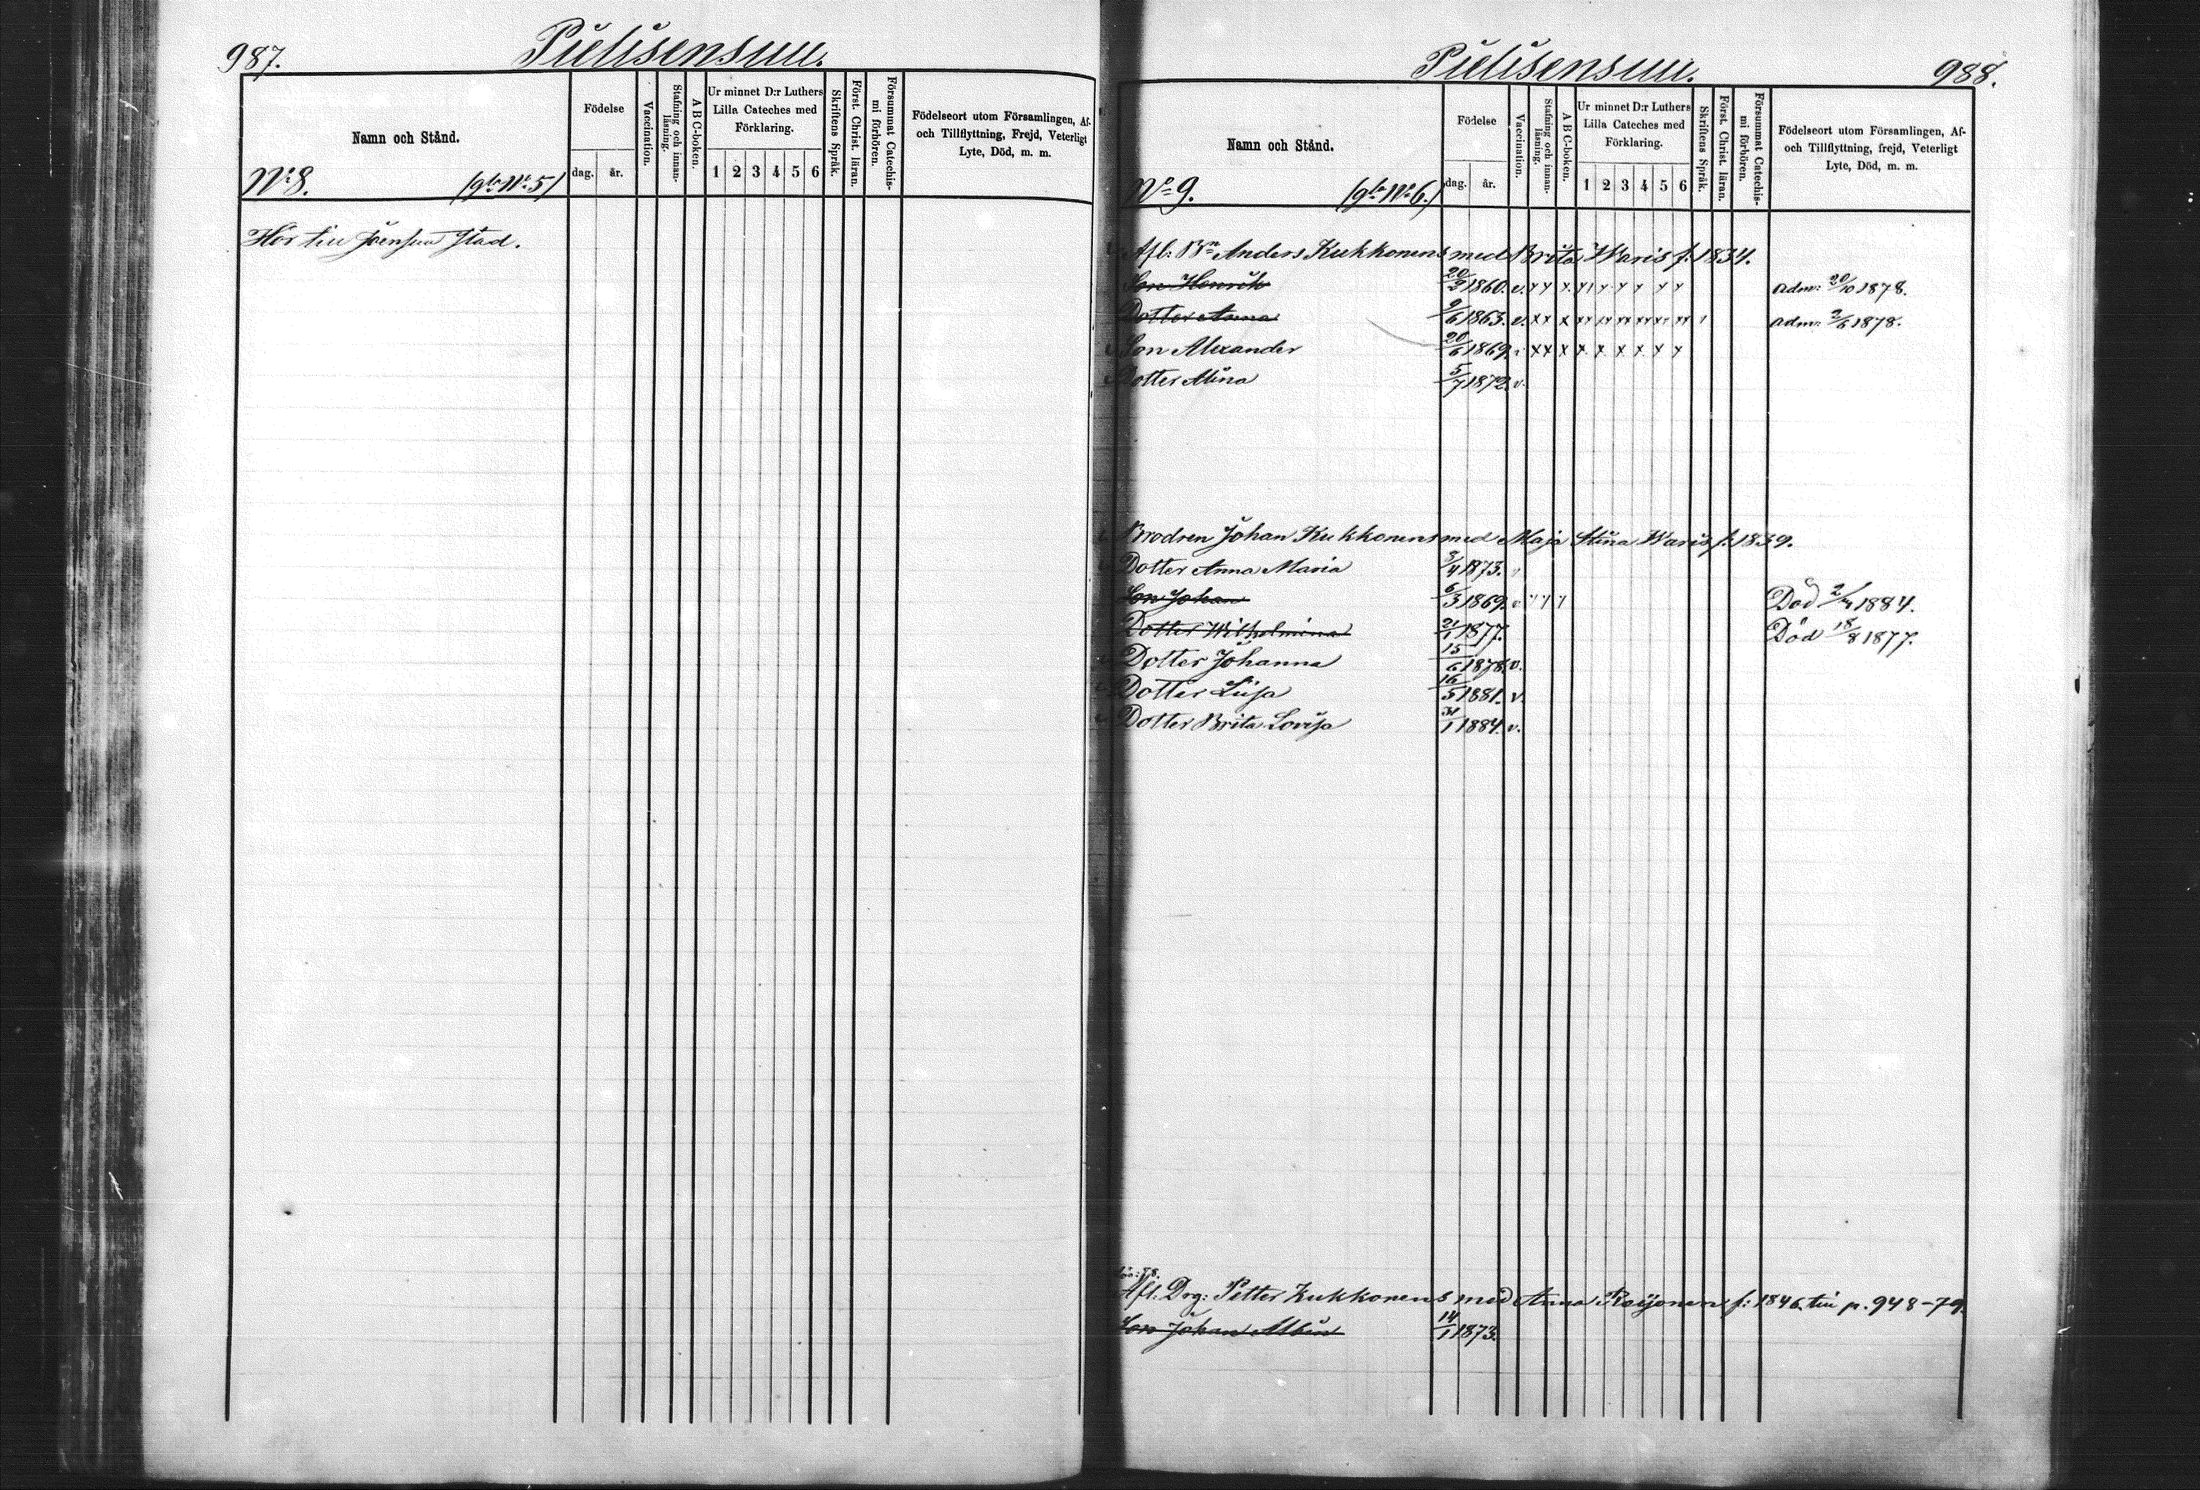 987. Pielisensuu.
Namn och Stånd.
Födelse
dag. år.
Vaccination.
Stafning och innan-läsning.
ABC-boken.
Ur minnet D:r Luthers
Lilla Cateches med
Förklaring.
1 2 3 4 5 6
Skriftens Språk.
Först. Christ. läran.
Försummat Catechis-mi förhören.
Födelseort utom Församlingen, Af-
och Tillflyttning, Frejd, Veterligt
Lyte, Död, m. m.
N:o 8. (gla N:o 5)
Hör till Joensuu Stad.
Pielisensuu. 988.
Namn och Stånd.
Födelse
dag. år.
Vaccination.
Stafning och innan-läsning.
ABC-boken.
Ur minnet D:r Luthers
Lilla Cateches med
Förklaring.
1 2 3 4 5 6
Skriftens Språk.
Först. Christ. läran.
Försummat Catechis-mi förhören.
Födelseort utom Församlingen, Af-
och Tillflyttning, frejd, Veterligt
Lyte, Död, m. m.
N:o 9. (gla N:o 6.)
Afl: Bn Anders Kukkonens med Brita Waris f: 1834.
Son Henrik 20/3 1860. v. adm: 20/10 1878.
Dotter Anna 9/6 1863. v. adm: 2/6 1878.
Son Alexander 20/6 1869.
Dotter Alina 5/7 1872. v.
Brodren Johan Kukkonens med Maja Stina Waris f. 1839.
Dotter Anna Maria 3/4 1873.
Son Johan 6/3 1869. v Död 2/4 1884.
Dotter Wilhelmina 21/1 1877. Död 18/8 1877.
Dotter Johanna 15/6 1878. v.
Dotter Liisa 16/5 1881. v.
Dotter Brita Lovisa 31/1 1884. v.
Afl: Drg: Petter Kukkonens med Anna Roijonen f: 1846. till p. 948-79.
Son Johan Albin 14/1 1873.